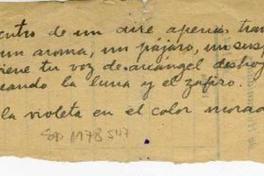 entro de un aire apenas tran
un aroma, un pájaro, un susp
iene tu voz de arcángel deshoj
eando la luna y el zafiro.
la violeta en el color morad